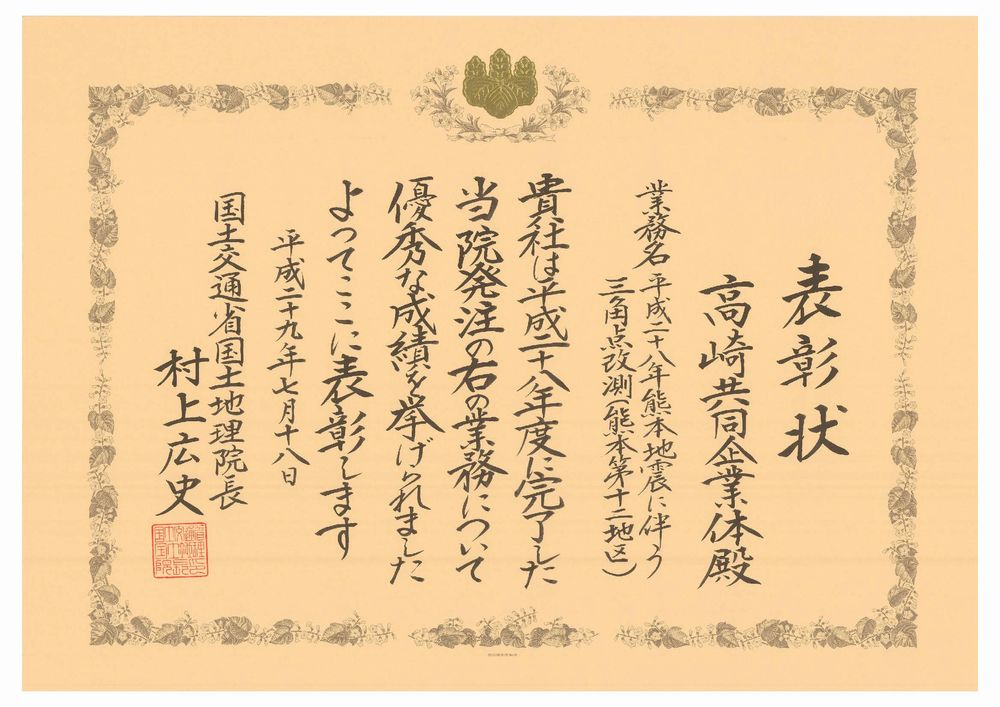 表彰状
高崎共同企業体殿
業務名 平成二十八年熊本地震に伴う
三角点改測(熊本第十二地区)
貴社は平成二十八年度に完了した
当院発注の右の業務について
優秀な成績を挙げられました
よってここに表彰します
平成二十九年七月十八日
国土交通省国土地理院長
村上広史